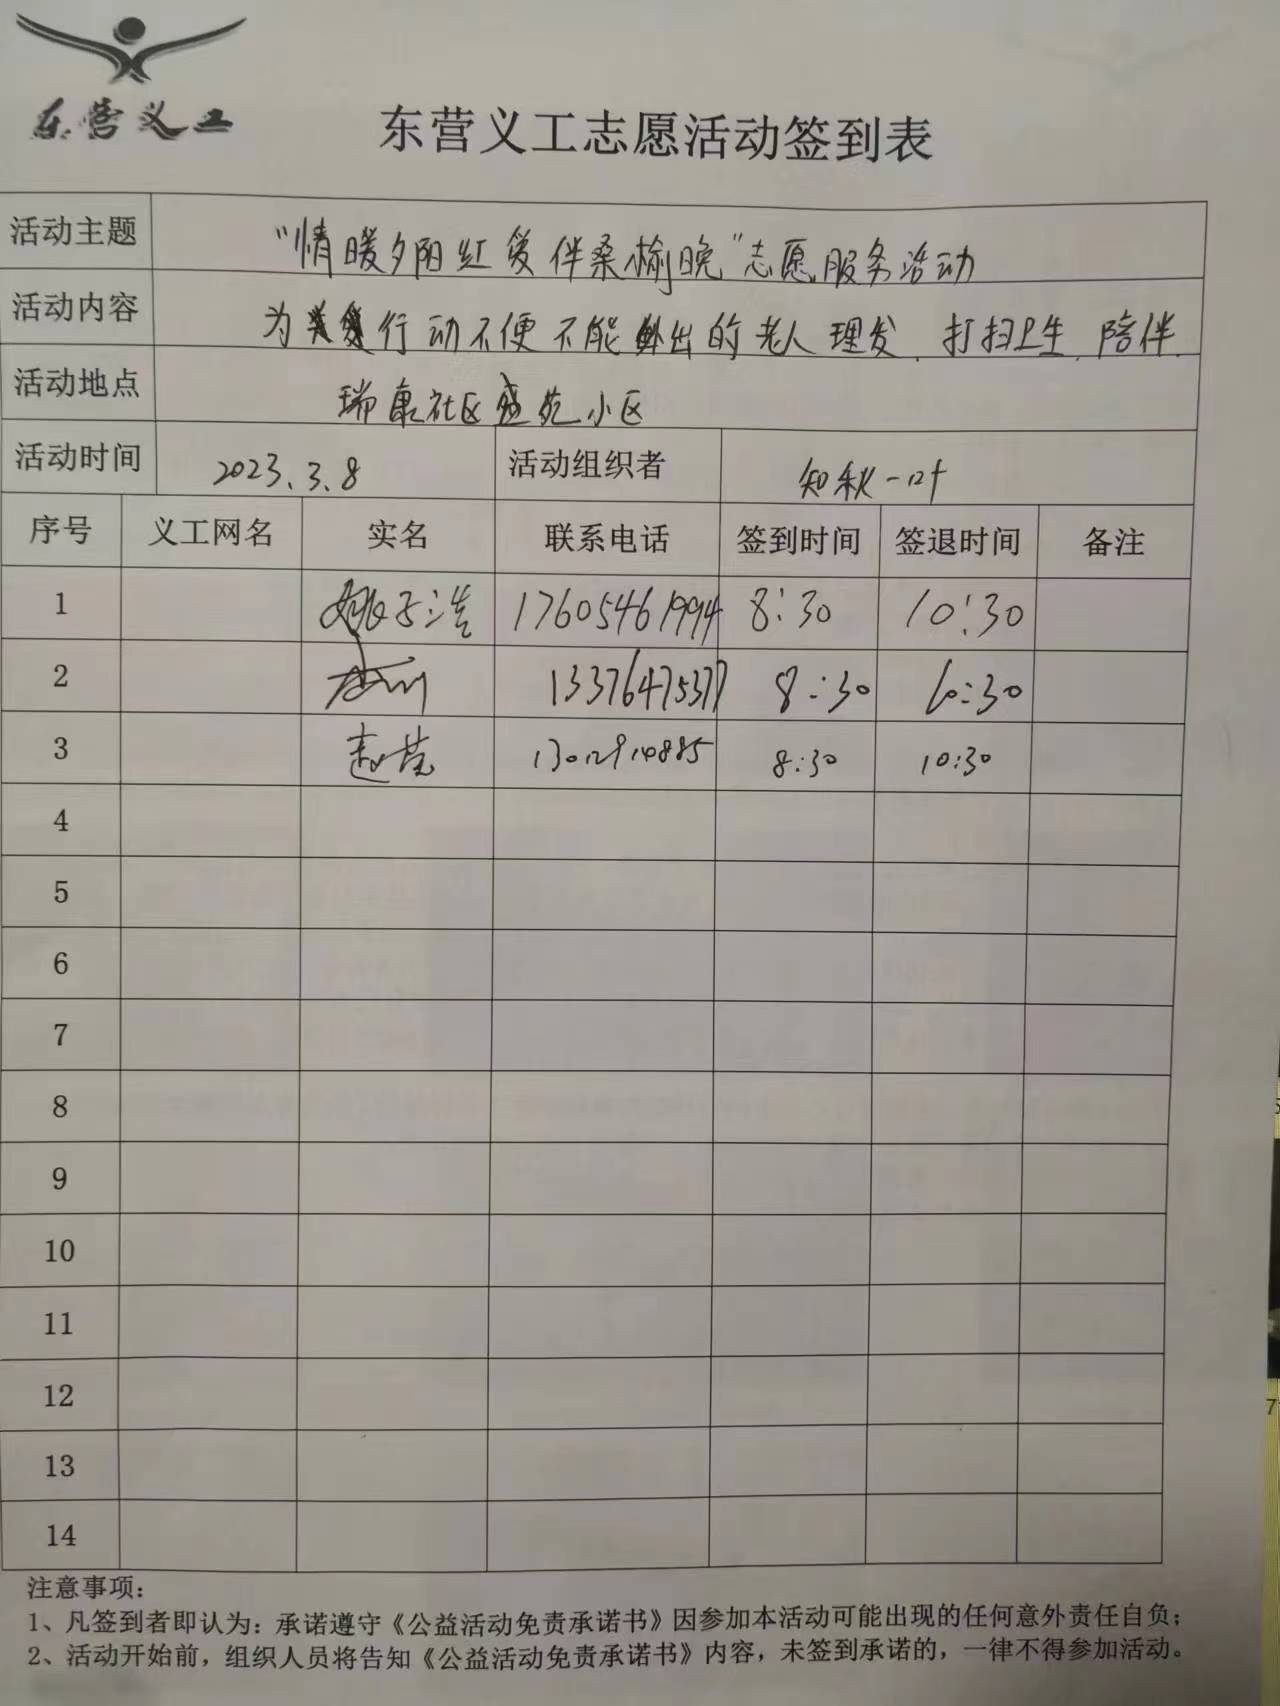 东营义工
东营义工志愿活动签到表
活动主题 "情暖夕阳红爱伴桑榆晚"志愿服务活动
活动内容 为行动不便不能外出的老人理发、打扫卫生、陪伴.
活动地点 瑞康社区盛苑小区
活动时间 2023.3.8 活动组织者 知秋一叶
序号 义工网名 实名 联系电话 签到时间 签退时间 备注
1 姚子浩 17605461994 8:30 10:30
2 13376475377 8:30 10:30
3 8:30 10:30
4
5
6
7
8
9
10
11
12
13
14
注意事项:
1、凡签到者即认为:承诺遵守《公益活动免责承诺书》因参加本活动可能出现的任何意外责任自负;
2、活动开始前,组织人员将告知《公益活动免责承诺书》内容,未签到承诺的,一律不得参加活动。